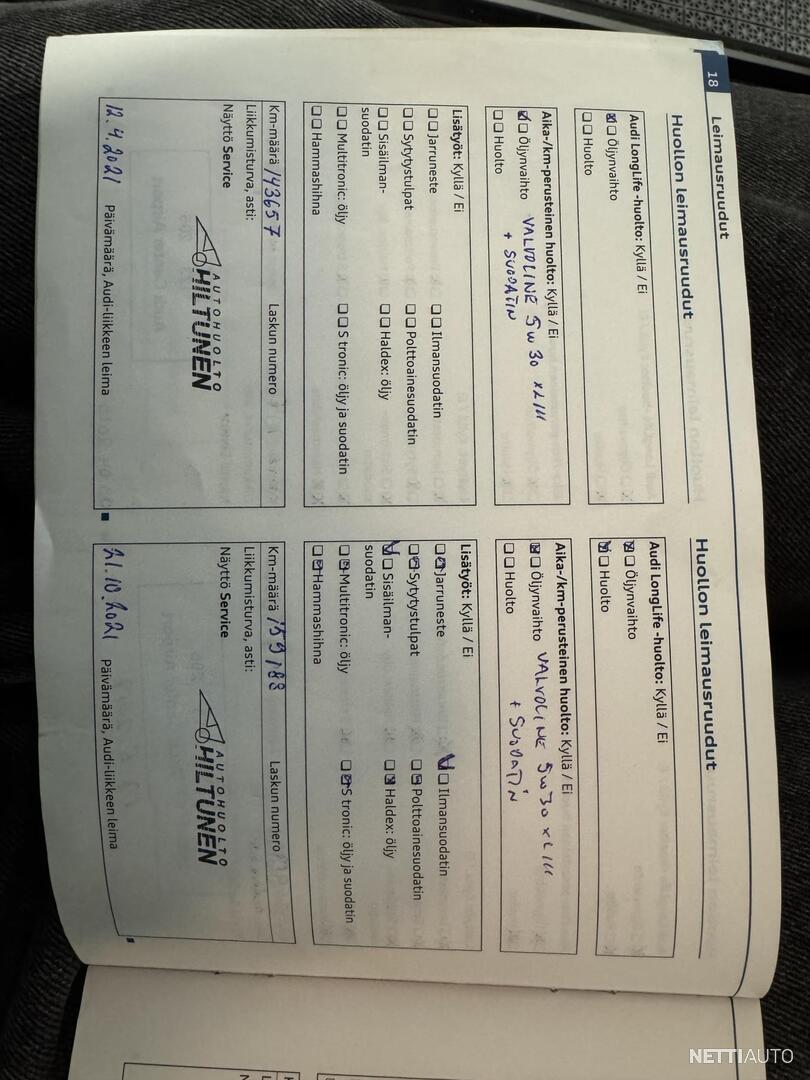 18 Leimausruudut
Huollon leimausruudut
Audi LongLife -huolto: Kyllä / Ei
Öljynvaihto
Huolto
Aika-/km-perusteinen huolto: Kyllä / Ei
Öljynvaihto VALVOLINE 5W30 XL III
+ SUODATIN
Huolto
Lisätyöt: Kyllä / Ei
Jarruneste
Ilmansuodatin
Sytytystulpat
Polttoainesuodatin
Sisäilman-
suodatin
Haldex: öljy
Multitronic: öljy
S tronic: öljy ja suodatin
Hammashihna
Km-määrä 143657 Laskun numero
Liikkumisturva, asti:
Näyttö Service
AUTOHUOLTO
HILTUNEN
12.4.2021 Päivämäärä, Audi-liikkeen leima
Huollon leimausruudut
Audi LongLife -huolto: Kyllä / Ei
Öljynvaihto
Huolto
Aika-/km-perusteinen huolto: Kyllä / Ei
Öljynvaihto VALVOLINE 5W30 XL III
+ SUODATIN
Huolto
Lisätyöt: Kyllä / Ei
Jarruneste
Ilmansuodatin
Sytytystulpat
Polttoainesuodatin
Sisäilman-
suodatin
Haldex: öljy
Multitronic: öljy
S tronic: öljy ja suodatin
Hammashihna
Km-määrä 159188 Laskun numero
Liikkumisturva, asti:
Näyttö Service
AUTOHUOLTO
HILTUNEN
21.10.2021 Päivämäärä, Audi-liikkeen leima
NETTIAUTO